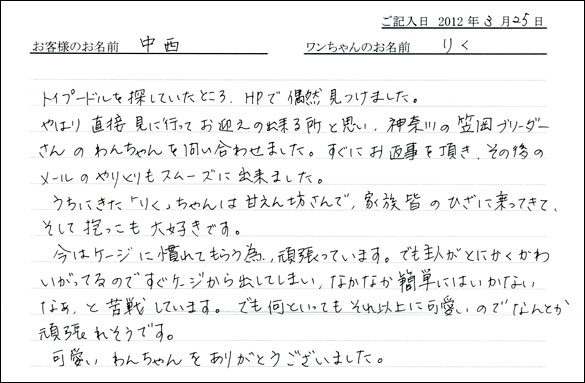 ご記入日 2012年3月25日
お客様のお名前 中西 ワンちゃんのお名前 りく
トイプードルを探していたところ、HPで偶然見つけました。
やはり直接見に行ってお迎えの出来る所と思い、神奈川の笠岡ブリーダー
さんのわんちゃんを問い合わせました。すぐにお返事を頂き、その後の
メールのやりとりもスムーズに出来ました。
うちにきた「りく」ちゃんは甘えん坊さんで、家族皆のひざに乗ってきて、
そして抱っこも大好きです。
今はケージに慣れてもらう為、頑張っています。でも主人がとにかくかわ
いがってるのですぐケージから出してしまい、なかなか簡単にはいかない
なぁ、と苦戦しています。でも何といってもそれ以上に可愛いのでなんとか
頑張れそうです。
可愛いわんちゃんをありがとうございました。